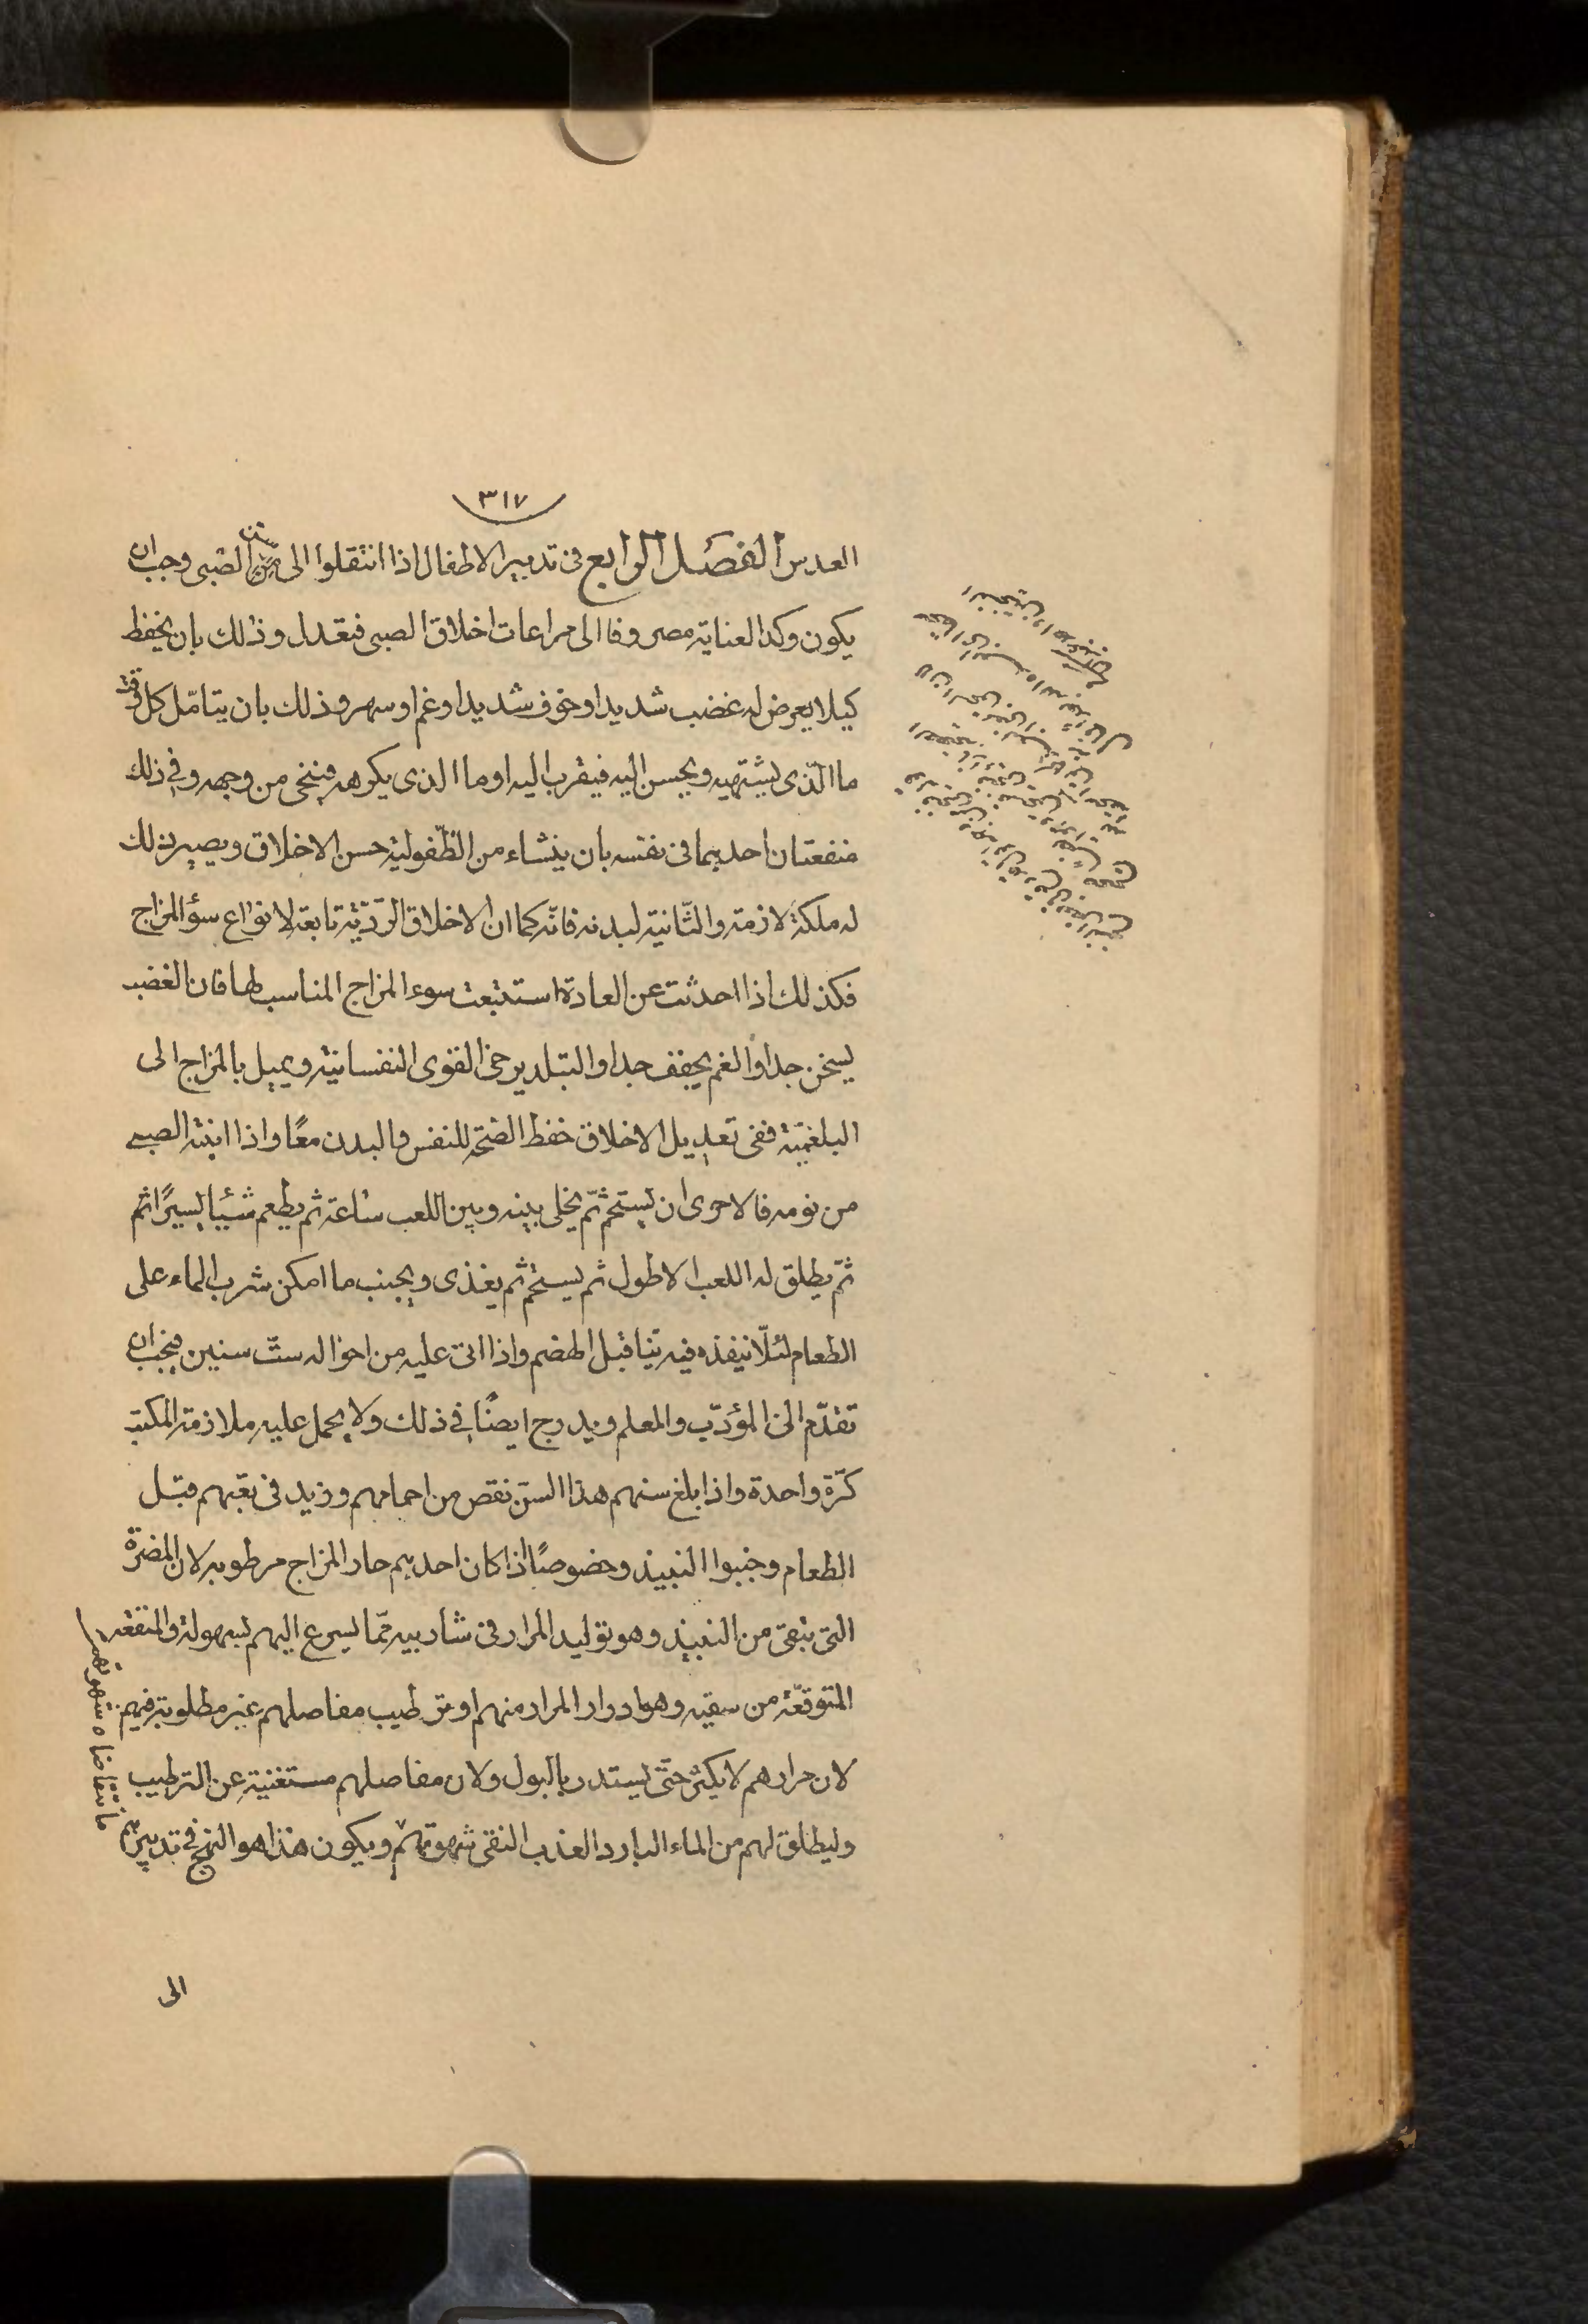 ٣١٧
العدس الفصل الرابع فى تدبير الاطفال اذا انتقلوا الى سن الصبى وجب ان
يكون وكد العناية مصروفا الى مراعات اخلاق الصبى فيعدل وذلك بان يحفظ
كيلا يعرض له غضب شديد او خوف شديد او غم او سهر وذلك بان يتامّل كل وقت
ما الّذى يشتهيه ويحسن اليه فيقرب اليه او ما الذى يكرهه فينحى من وجهه وفى ذلك
منفعتان احديهما فى نفسه بان ينشاء من الطّفولية حسن الاخلاق ويصير ذلك
له ملكة لازمة والثّانية لبدنه فانّه كما ان الاخلاق الرّديّة تابعة لانواع سؤ المزاج
فكذلك اذا احدثت عن العادة استتبعت سوء المزاج المناسب لها فان الغضب
يسخن جدا والغم يجفف جدا والتبلد يرخى القوى النفسانية ويميل بالمزاج الى
البلغميّة ففى تعديل الاخلاق حفظ الصّحة للنفس والبدن معًا واذا انتبه الصبى
من نومه فالاحرى ان يستحم ثمّ يخلى بينه وبين اللعب ساعة ثم يطعم شيئا يسيرًا ثم
ثمّ يطلق له اللعب الاطول ثم يستحم ثم يغذى ويجنب ما امكن شرب الماء على
الطعام لئلّا ينفذه فيه نيّا قبل الهضم واذا اتى عليه من احواله ستّ سنين فيجب ان
تقدّم الى المؤدّب والمعلم ويدرج ايضًا فى ذلك ولا يحمل عليه ملازمة المكتب
كرّة واحدة واذا بلغ سنهم هذا السن نقص من احمامهم وزيد فى تعبهم قبل
الطعام وجنبوا النبيذ وخصوصًا اذا كان احدهم حار المزاج مرطوبه لان المضرّة
التى تبقى من النبيذ وهو توليد المرار فى شاربيه ممّا يسرع اليهم بسهولة والمنفعة
المتوقعّة من سقيه وهو ادرار المرار منهم او ترطيب مفاصلهم غير مطلوبة فيهم
لان مرارهم لا يكثر حتّى يستدر بالبول ولان مفاصلهم مستغنية عن الترطيب
وليطلق لهم من الماء البارد العذب النقى شهوتهم ويكون هذا هو النهج فى تدبيرهم
الى